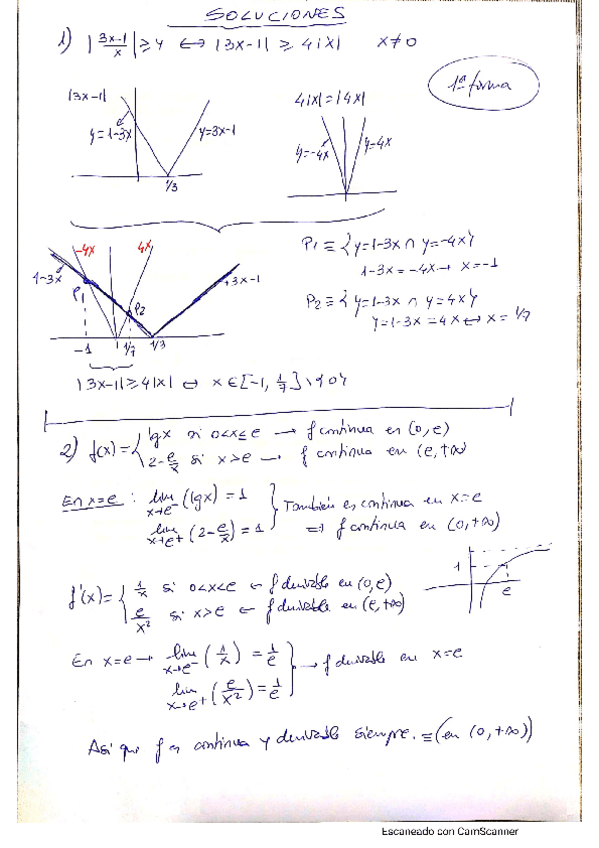 SOLUCIONES
1) |3x-1/x| ≥ 4 ↔ |3x-1| ≥ 4|x|   x≠0
1ª forma
|3x-1|
y=1-3x
y=3x-1
1/3
4|x|=|4x|
y=-4x
y=4x
-4x
4x
1-3x
P1
P2
+3x-1
-1
1/7
1/3
P1 ≡ {y=1-3x ∩ y=-4x}
1-3x=-4x → x=-1
P2 ≡ {y=1-3x ∩ y=4x}
y=1-3x=4x ↔ x=1/7
|3x-1| ≥ 4|x| ↔ x∈[-1, 1/7]\{0}
2) f(x)= { lgx si 0<x≤e → f continua en (0,e)
2-e/x si x>e → f continua en (e,+∞)
En x=e : lim x→e- (lgx) = 1
lim x→e+ (2-e/x) = 1
También es continua en x=e
⇒ f continua en (0,+∞)
1
e
f'(x)= { 1/x si 0<x<e ← f derivable en (0,e)
e/x² si x>e ← f derivable en (e,+∞)
En x=e → lim x→e- (1/x) = 1/e
lim x→e+ (e/x²) = 1/e
→ f derivable en x=e
Así que f es continua y derivable siempre. ≡ (en (0,+∞))
Escaneado con CamScanner